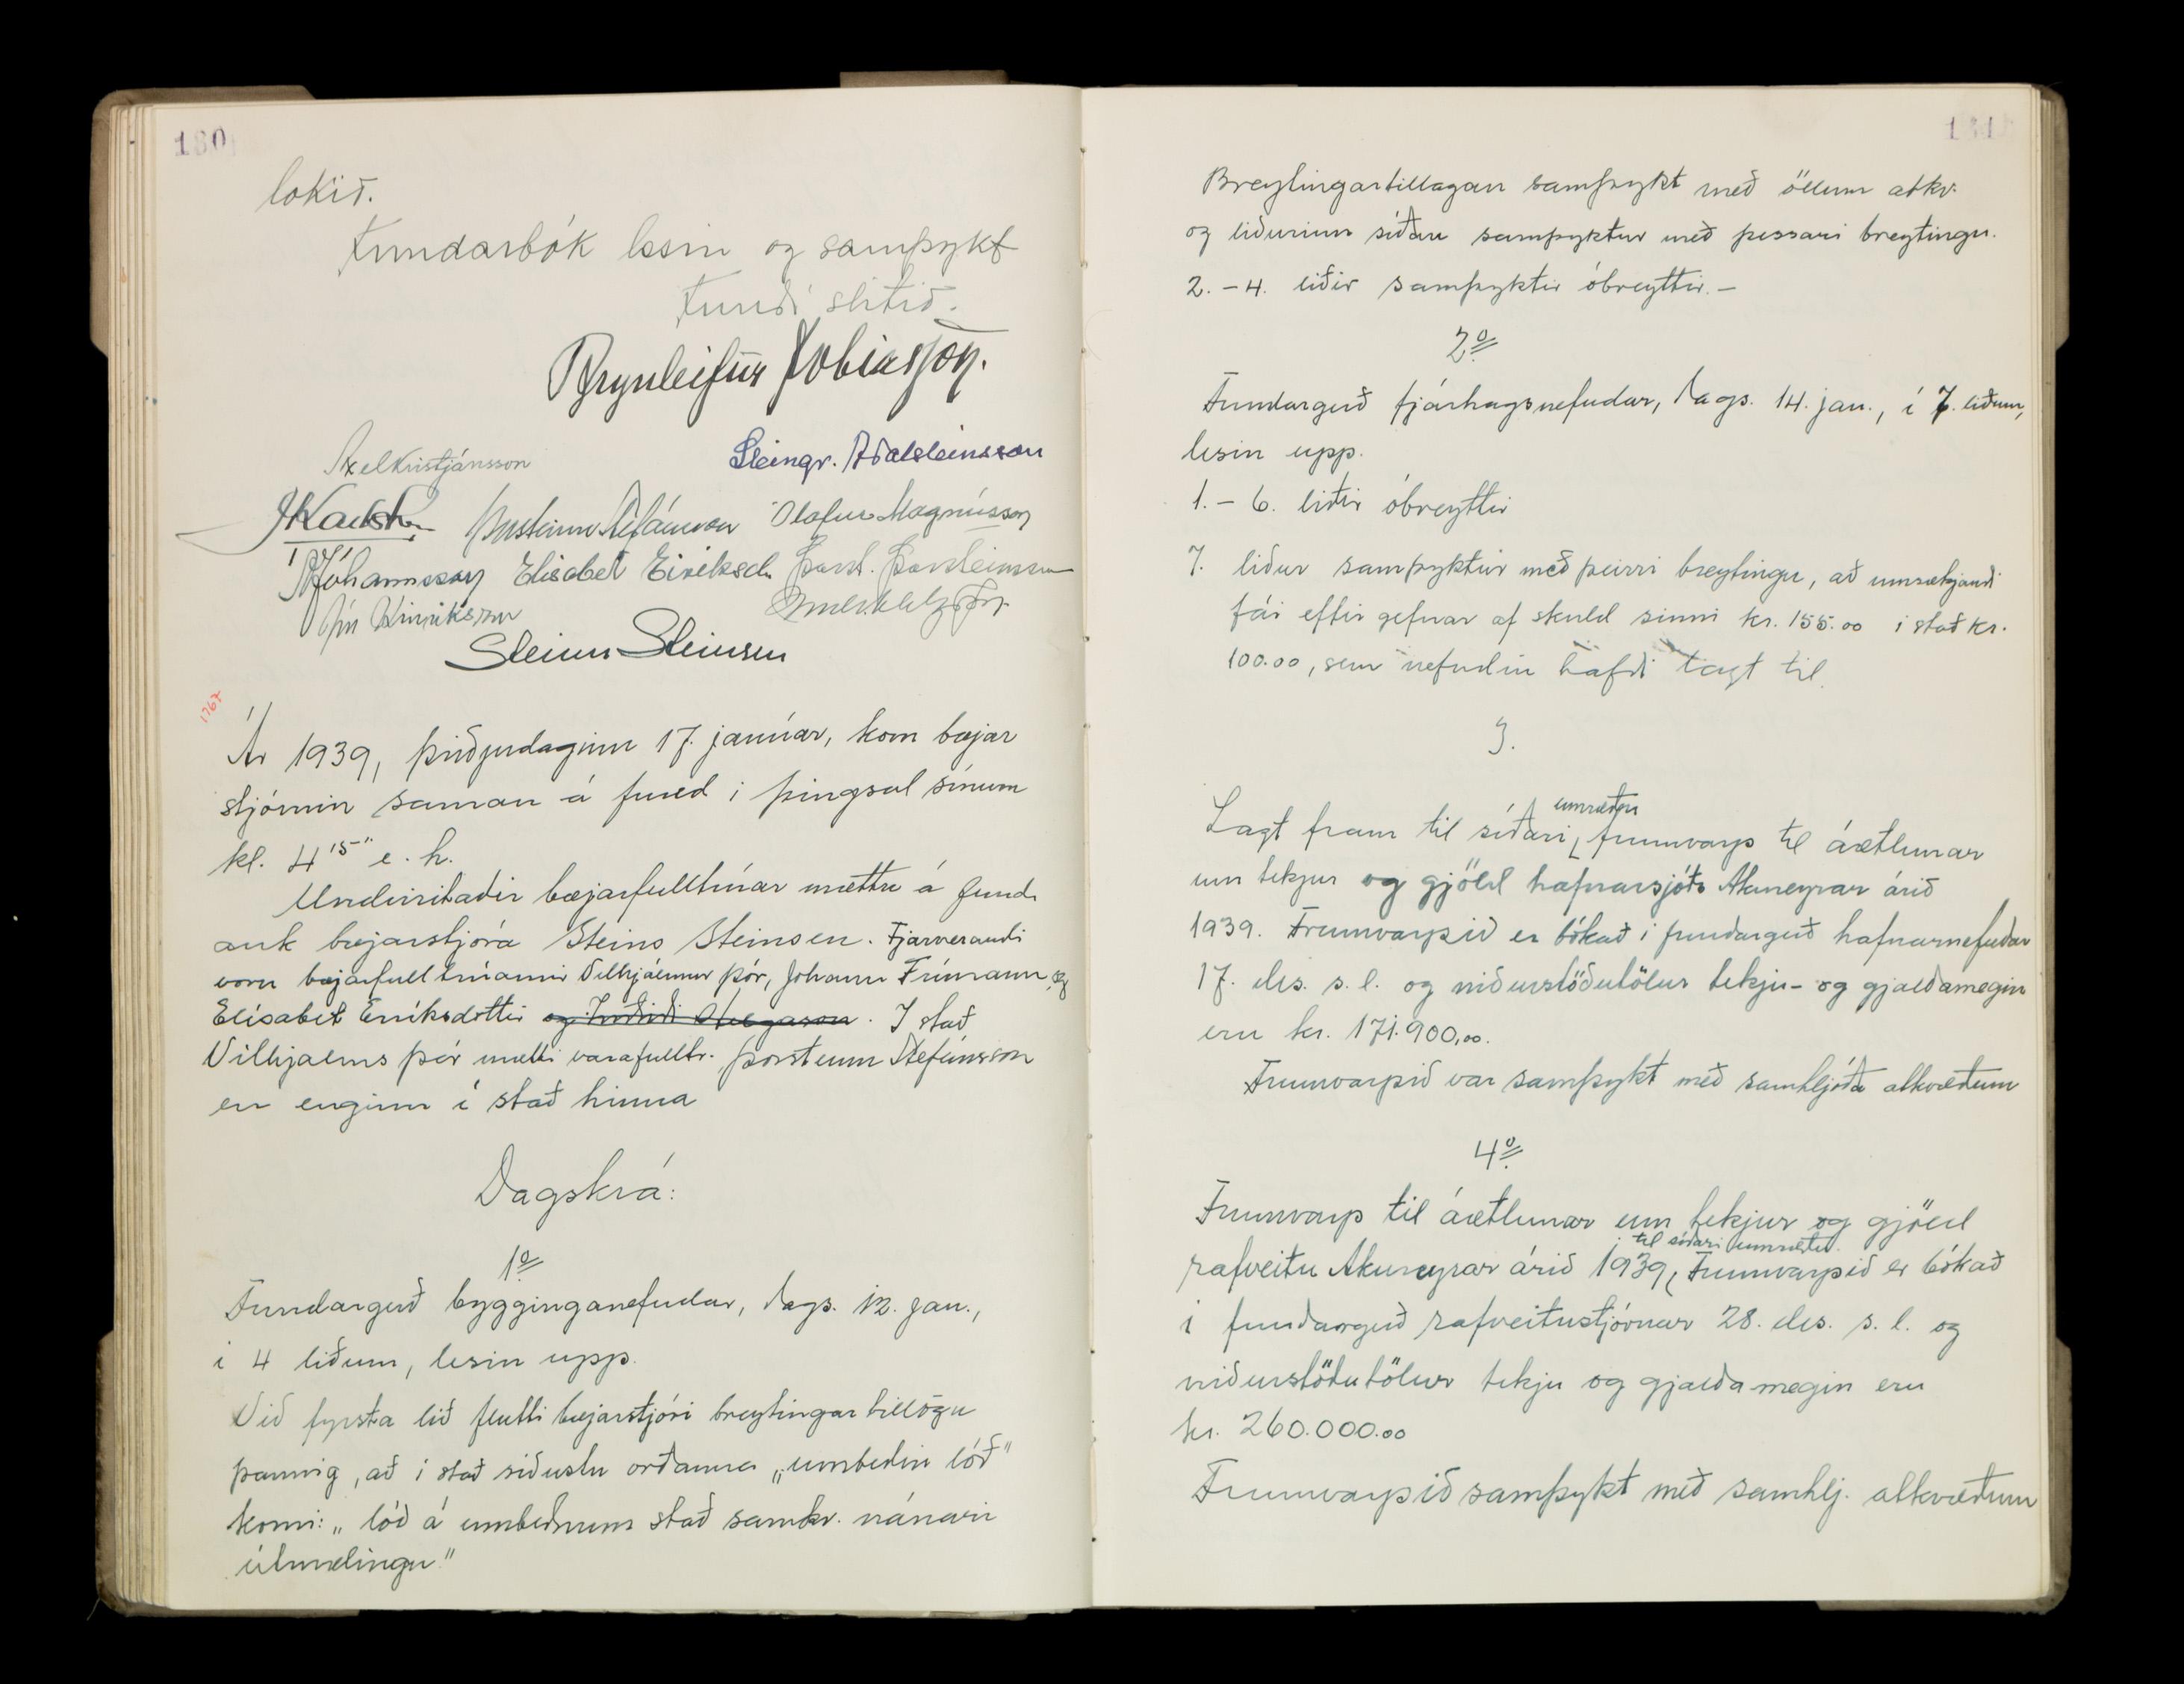 180
lokið.
Fundarbók lesin og samþykt
Fundi slitið.
Brynleifur Tobiasson.
Axel Kristjánsson
Steingr. Aðalsteinsson
J Karlsson Þorsteinn Stefánsson Ólafur Magnússon
Jóhannsson Elisabet Eiríksd. Þorst. Þorsteinsson
Jón Hinriksson
Steinn Steinsen
1767
Ár 1939, þriðjudaginn 17. janúar, kom bæjar
stjórnin saman á fund i þingsal sínum
kl. 4 15 e. h.
Undirritaðir bæjarfulltrúar mættu á fundi
auk bæjarstjóra Steins Steinsen. Fjarverandi
voru bæjarfulltrúarnir Vilhjálmur Þór, Jóhann Frímann, og
Elísabet Eiríksdóttir og Indriði Helgason. I stað
Vilhjalms Þór mætti varafulltr. Þorsteinn Stefánsson
en enginn í stað hinna
Dagskrá:
1º
Fundargerð bygginganefndar, dags. 12. jan.,
i 4 liðum, lesin upp.
Við fyrsta lið flutti bæjarstjóri breytingartillögu
þannig, að i stað siðustu orðanna „umbeðin lóð"
komi: „lóð á umbeðnum stað samkv. nánari
útmælingu"
181
Breytingartillagan samþykt með öllum atkv.
og liðurinn síðan samþyktur með þessari breytingu.
2. - 4. liðir samþyktir óbreyttir. -
2º
Fundargerð fjárhagsnefndar, dags. 14. jan., í 7. liðum,
lesin upp.
1. - 6. liðir óbreyttir
7. liður samþyktur með þeirri breytingu, að umsækjandi
fái eftir gefnar af skuld sinni kr. 155.00 i stað kr.
100.00, sem nefndin hafði lagt til.
3.
Lagt fram til síðari umræðu frumvarp til áætlunar
um tekjur og gjöld hafnarsjóðs Akureyrar árið
1939. Frumvarpið er bókað i fundargerð hafnarnefndar
17. des. s. l. og niðurstöðutölur tekju- og gjaldamegin
eru kr. 171.900,00.
Frumvarpið var samþykt með samhljóða atkvæðum
4º
Frumvarp til áætlunar um tekjur og gjöld
rafveitu Akureyrar árið 1939, til síðari umræðu. Frumvarpið er bókað
i fundargerð rafveitustjórnar 28. des. s. l. og
niðurstöðutölur tekju og gjaldamegin eru
kr. 260.000.00
Frumvarpið samþykt með samhlj. atkvæðum